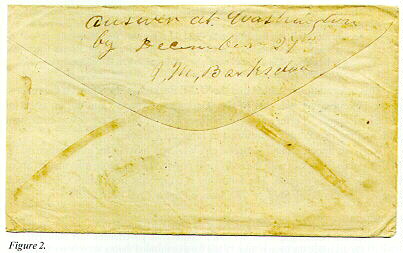 answer at Washington
by December 27th
J. M. Barksdale
Figure 2.